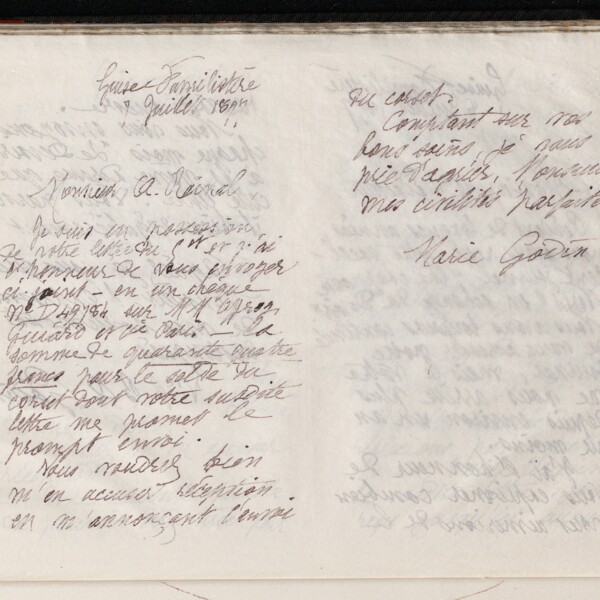 Guise Familistère
8 Juillet 1897
Monsieur A. Rainal
Je suis en possession
de votre lettre du 6 ct et j'ai
l'honneur de vous envoyer
ci-joint – en un chèque
n° D 49784 sur MM
Guiard et Cie Paris – la
somme de quarante quatre
francs pour le solde du
corset dont votre susdite
lettre me promet le
prompt envoi.
Vous voudrez bien
m'en accuser réception
en m'annonçant l'envoi
du corset.
Comptant sur vos
bons soins, je vous
prie d'agréer, Monsieur
mes civilités parfaites
Marie Godin